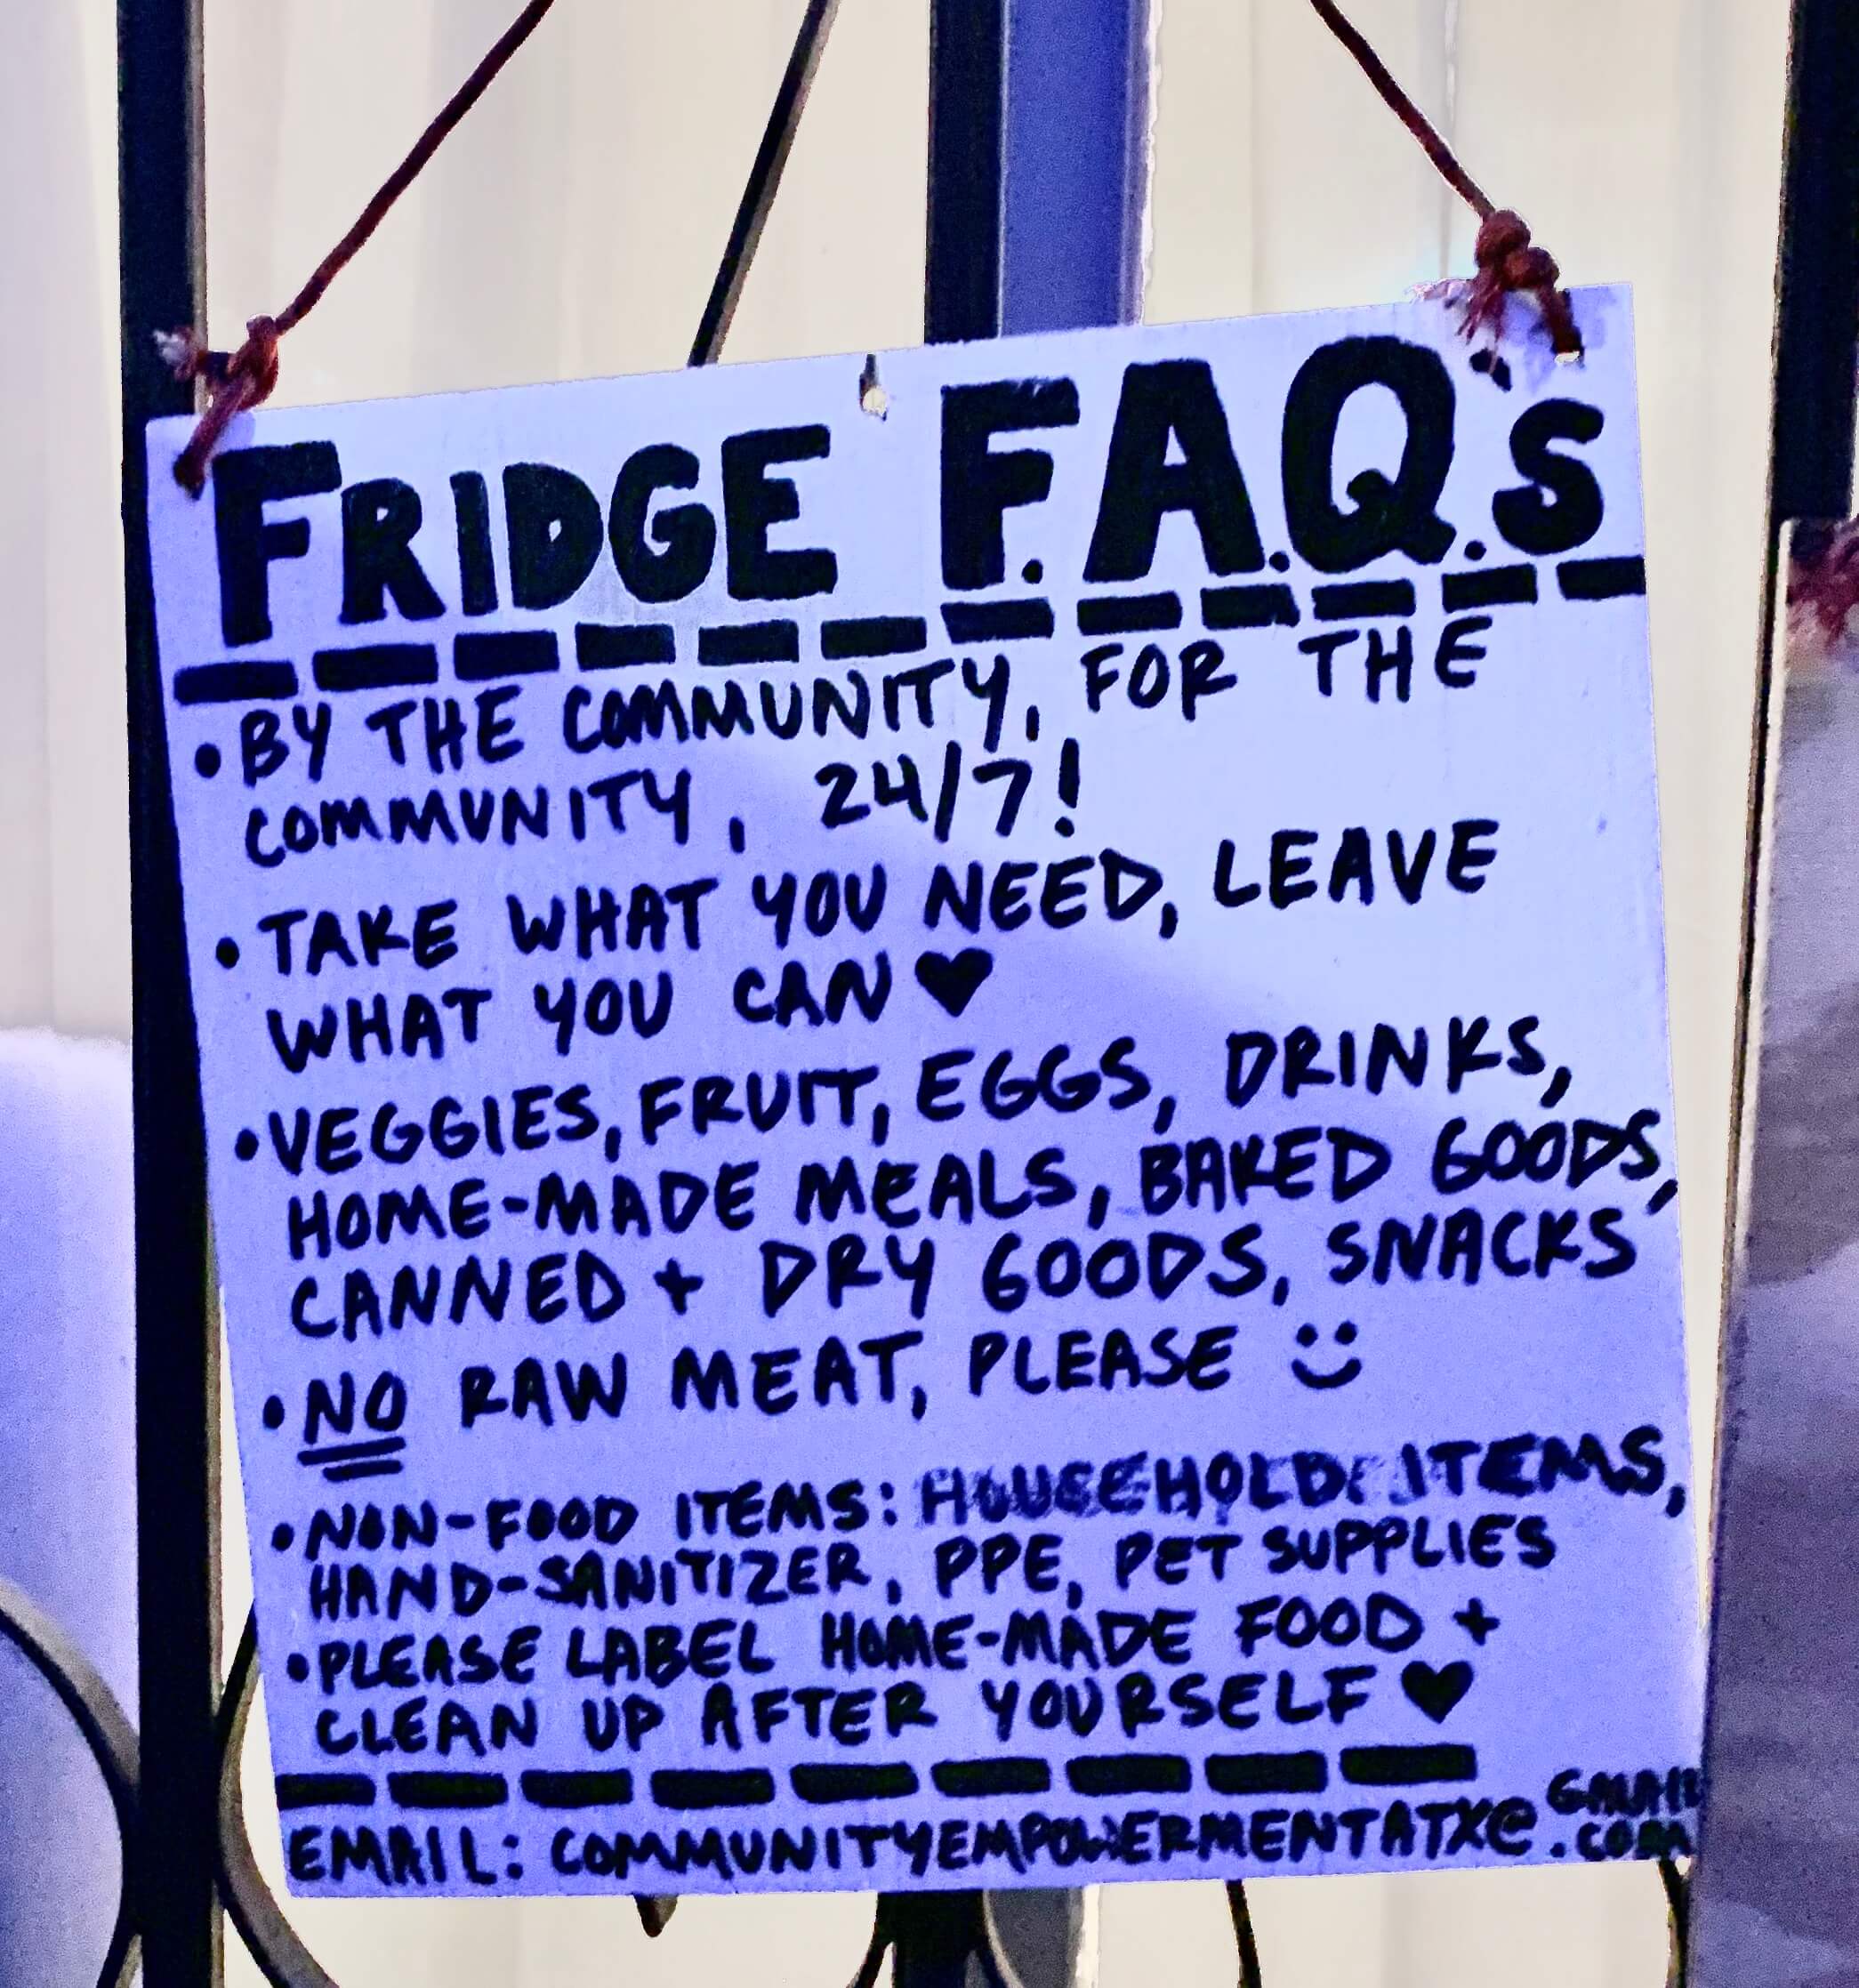 FRIDGE F.A.Q.'s
• BY THE COMMUNITY, FOR THE
COMMUNITY, 24/7!
• TAKE WHAT YOU NEED, LEAVE
WHAT YOU CAN ♥
• VEGGIES, FRUIT, EGGS, DRINKS,
HOME-MADE MEALS, BAKED GOODS,
CANNED + DRY GOODS, SNACKS
• NO RAW MEAT, PLEASE :)
• NON-FOOD ITEMS: HOUSEHOLD ITEMS,
HAND-SANITIZER, PPE, PET SUPPLIES
• PLEASE LABEL HOME-MADE FOOD +
CLEAN UP AFTER YOURSELF ♥
EMAIL: COMMUNITYEMPOWERMENTATX@GMAIL
.COM